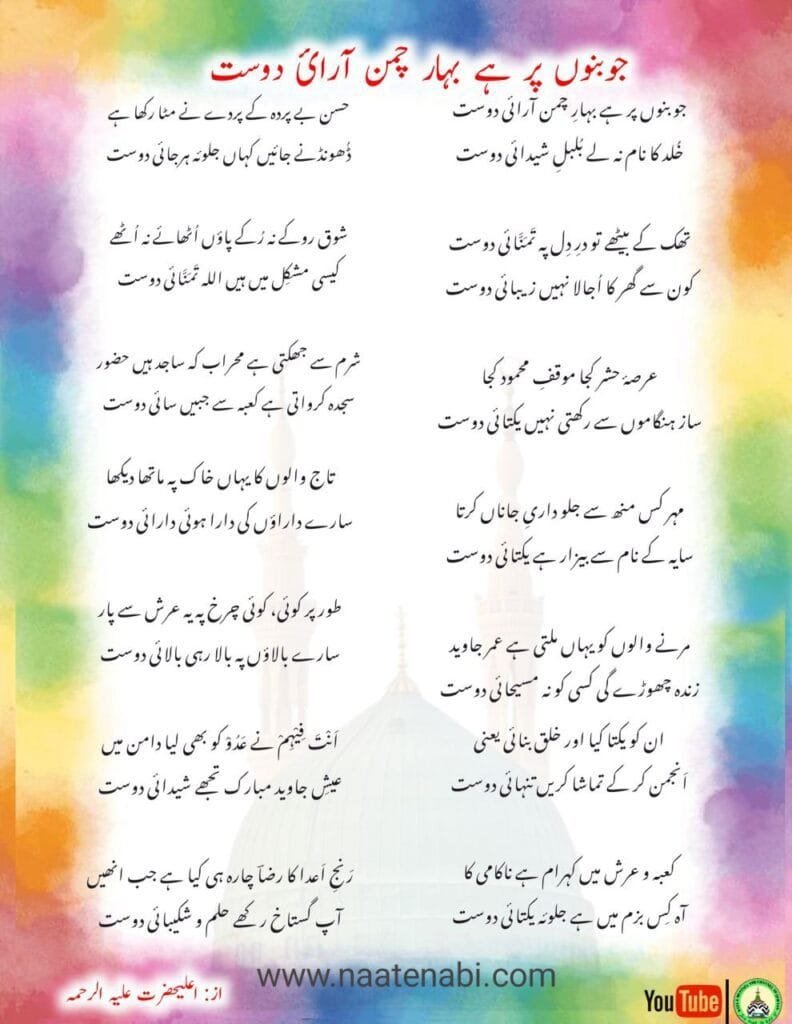 جوبنوں پر ہے بہار چمن آرائ دوست
جوبنوں پر ہے بہارِ چمن آرائی دوست
خُلد کا نام نہ لے بُلبلِ شیدائی دوست
تھک کے بیٹھے تو درِ دِل پہ تَمَنَّائی دوست
کون سے گھر کا اُجالا نہیں زیبائی دوست
عرصۂ حشر کجا موقفِ محمود کجا
ساز ہنگاموں سے رکھتی نہیں یکتائی دوست
مہر کس منھ سے جلو داریِ جاناں کرتا
سایہ کے نام سے بیزار ہے یکتائی دوست
مرنے والوں کو یہاں ملتی ہے عمر جاوید
زندہ چھوڑے گی کسی کو نہ مسیحائی دوست
ان کو یکتا کیا اور خلق بنائی یعنی
اَنجمن کر کے تماشا کریں تنہائی دوست
کعبہ و عرش میں کہرام ہے ناکامی کا
آہ کِس بزم میں ہے جلوئہ یکتائی دوست
حسن بے پردہ کے پردے نے مٹا رکھا ہے
ڈُھونڈنے جائیں کہاں جلوئہ ہرجائی دوست
شوق روکے نہ رُکے پاؤں اُٹھائے نہ اُٹھے
کیسی مشکِل میں ہیں اللہ تَمَنَّائی دوست
شرم سے جھکتی ہے محراب کہ ساجد ہیں حضور
سجدہ کرواتی ہے کعبہ سے جبیں سائی دوست
تاج والوں کا یہاں خاک پہ ماتھا دیکھا
سارے داراؤں کی دارا ہوئی دارائی دوست
طور پر کوئی، کوئی چرخ پہ یہ عرش سے پار
سارے بالاؤں پہ بالا رہی بالائی دوست
اَنْتَ فِیْہِمْ نے عَدُوّ کو بھی لیا دامن میں
عیشِ جاوید مبارک تجھے شیدائی دوست
رَنجِ اَعدا کا رضاؔ چارہ ہی کیا ہے جب انھیں
آپ گستاخ رکھے حلم و شکیبائی دوست
www.naatenabi.com
از: اعلیحضرت علیہ الرحمہ
YouTube